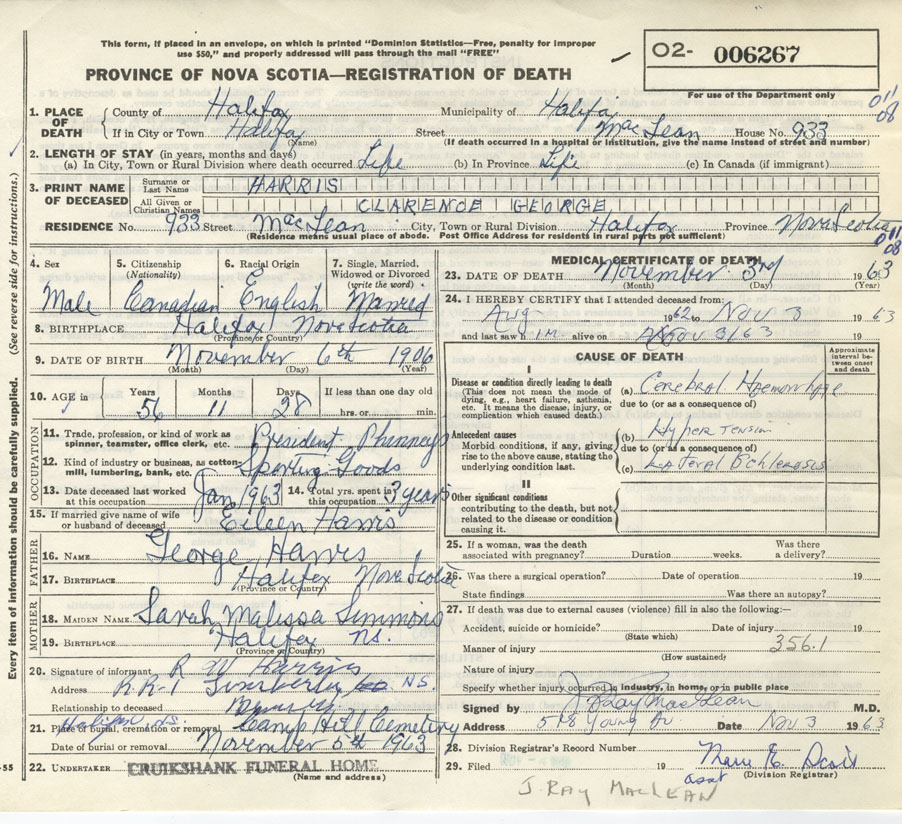 This form, if placed in an envelope, on which is printed "Dominion Statistics—Free, penalty for improper
use $50," and properly addressed will pass through the mail "FREE"
O2- 006267
PROVINCE OF NOVA SCOTIA—REGISTRATION OF DEATH
For use of the Department only
011
08
1. PLACE OF DEATH County of Halifax Municipality of Halifax
If in City or Town Halifax (Name) Street MacLean House No. 933
(If death occurred in a hospital or institution, give the name instead of street and number)
2. LENGTH OF STAY (in years, months and days)
(a) In City, Town or Rural Division where death occurred Life (b) In Province Life (c) In Canada (if immigrant)
3. PRINT NAME OF DECEASED Surname or Last Name HARRIS
All Given or Christian Names CLARENCE GEORGE
RESIDENCE No. 933 Street MacLean City, Town or Rural Division Halifax Province Nova Scotia
(Residence means usual place of abode. Post Office Address for residents in rural parts not sufficient)
011
08
(See reverse side for instructions.)
Every item of information should be carefully supplied.
4. Sex Male
5. Citizenship (Nationality) Canadian
6. Racial Origin English
7. Single, Married, Widowed or Divorced (write the word) Married
8. BIRTHPLACE Halifax Nova Scotia
(Province or Country)
9. DATE OF BIRTH November 6th 1906
(Month) (Day) (Year)
10. AGE in Years 56 Months 11 Days 28 If less than one day old hrs. or min.
OCCUPATION
11. Trade, profession, or kind of work as spinner, teamster, office clerk, etc. President, Phinneys
12. Kind of industry or business, as cotton mill, lumbering, bank, etc. Sporting Goods
13. Date deceased last worked at this occupation Jan 1963
14. Total yrs. spent in this occupation 3 years
15. If married give name of wife or husband of deceased Eileen Harris
FATHER
16. NAME George Harris
17. BIRTHPLACE Halifax Nova Scotia
(Province or Country)
MOTHER
18. MAIDEN NAME Sarah Malissa Simmons
19. BIRTHPLACE Halifax N.S.
(Province or Country)
20. Signature of informant R W Harris
Address R.R-1 Timberlea N.S.
Relationship to deceased
21. Place of burial, cremation or removal Halifax N.S. Camp Hill Cemetery
Date of burial or removal November 5th 1963
22. UNDERTAKER CRUIKSHANK FUNERAL HOME
(Name and address)
-55
MEDICAL CERTIFICATE OF DEATH
23. DATE OF DEATH November 3rd 1963
(Month) (Day) (Year)
24. I HEREBY CERTIFY that I attended deceased from:
Aug 1962 to Nov 3 1963
and last saw h im alive on Nov 3/63 19
CAUSE OF DEATH
Approximate interval between onset and death
I
Disease or condition directly leading to death
(This does not mean the mode of dying, e.g., heart failure, asthenia, etc. It means the disease, injury, or complication which caused death.)
(a) Cerebral Haemorrhage
due to (or as a consequence of)
Antecedent causes
Morbid conditions, if any, giving rise to the above cause, stating the underlying condition last.
(b) Hypertension
due to (or as a consequence of)
(c) Lateral Schlerosis
II
Other significant conditions
contributing to the death, but not related to the disease or condition causing it.
25. If a woman, was the death associated with pregnancy? Duration weeks. Was there a delivery?
26. Was there a surgical operation? Date of operation 19
State findings Was there an autopsy?
27. If death was due to external causes (violence) fill in also the following:—
Accident, suicide or homicide? Date of injury 19
(State which)
Manner of injury 356.1
(How sustained)
Nature of injury
Specify whether injury occurred in industry, in home, or in public place
Signed by J Ray MacLean M.D.
Address 518 Young Av. Date Nov 3 1963
28. Division Registrar's Record Number
29. Filed 19 Marie E. Scott
asst (Division Registrar)
J. RAY MACLEAN